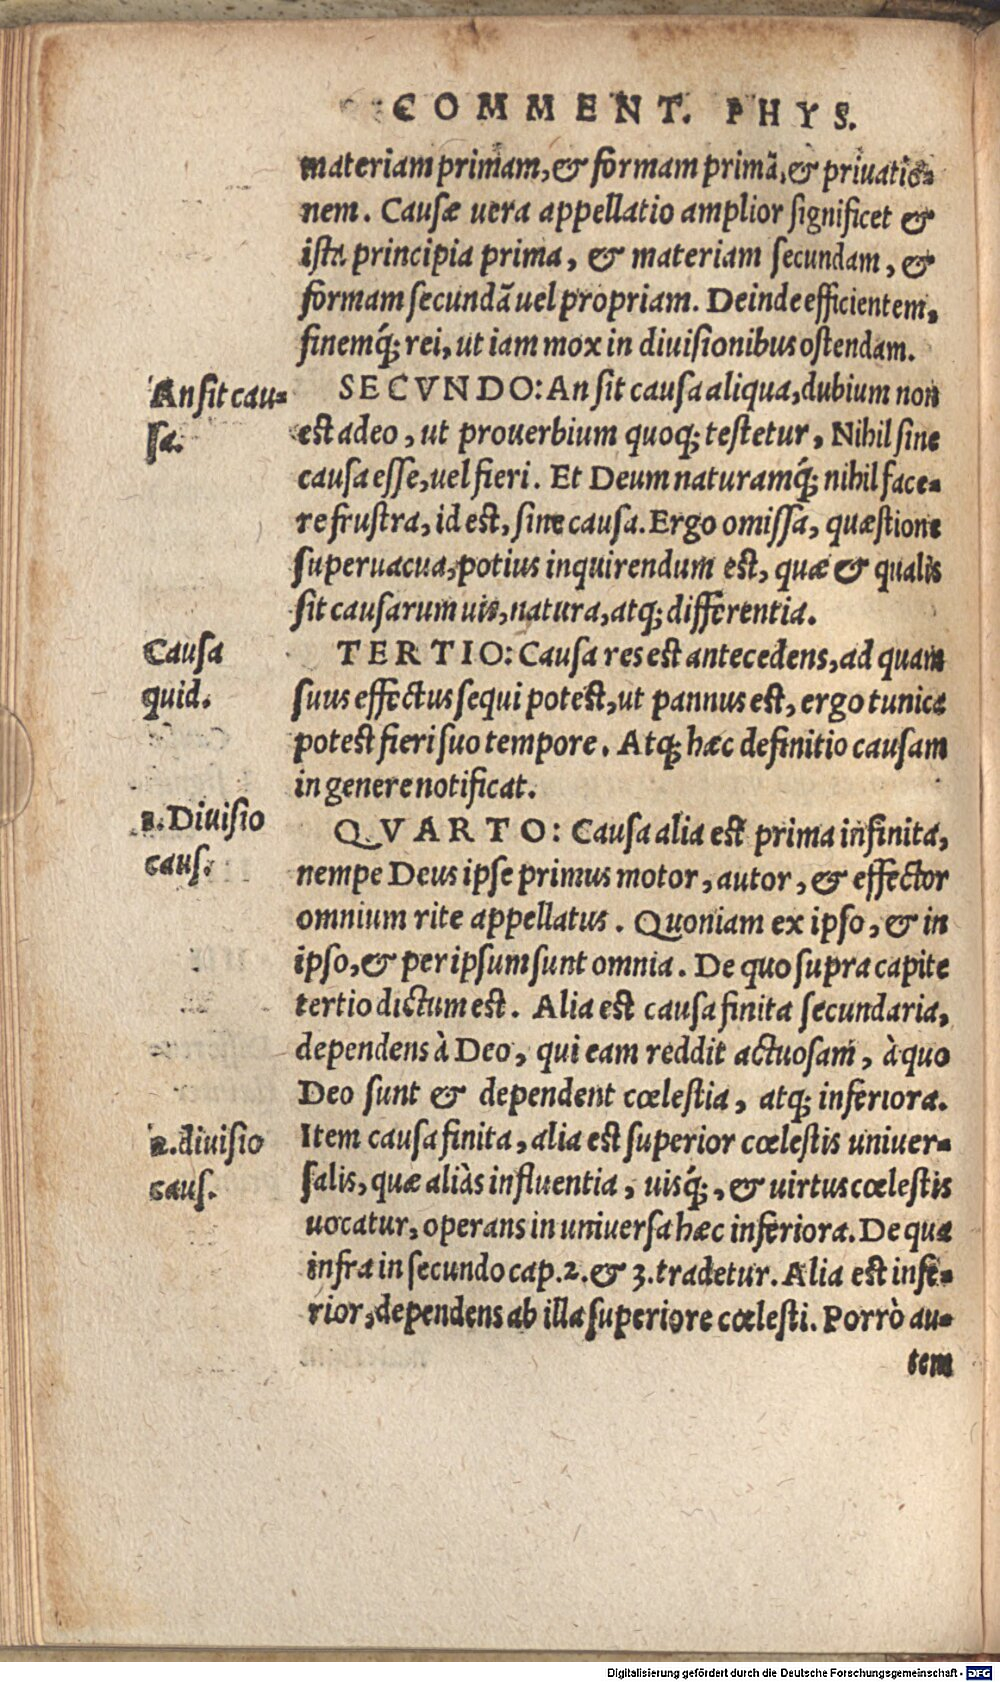 COMMENT. PHYS.
materiam primam, & formam primã, & priuatio-
nem. Causæ uera appellatio amplior significet &
ista principia prima, & materiam secundam, &
formam secundã uel propriam. Deinde efficientem,
finemq́; rei, ut iam mox in diuisionibus ostendam.
An sit cau-
sa.
SECVNDO: An sit causa aliqua, dubium non
est adeo, ut prouerbium quoq; testetur, Nihil sine
causa esse, uel fieri. Et Deum naturamq́; nihil face-
re frustra, id est, sine causa. Ergo omissa, quæstione
superuacua, potius inquirendum est, quæ & qualis
sit causarum uis, natura, atq; differentia.
Causa
quid.
TERTIO: Causa res est antecedens, ad quam
suus effectus sequi potest, ut pannus est, ergo tunica
potest fieri suo tempore. Atq; hæc definitio causam
in genere notificat.
1. Diuisio
caus.
QVARTO: Causa alia est prima infinita,
nempe Deus ipse primus motor, autor, & effector
omnium rite appellatus. Quoniam ex ipso, & in
ipso, & per ipsum sunt omnia. De quo supra capite
tertio dictum est. Alia est causa finita secundaria,
dependens à Deo, qui eam reddit actuosam, à quo
Deo sunt & dependent cœlestia, atq; inferiora.
2. diuisio
caus.
Item causa finita, alia est superior cœlestis uniuer-
salis, quæ aliàs influentia, uisq́;, & uirtus cœlestis
uocatur, operans in uniuersa hæc inferiora. De qua
infra in secundo cap. 2. & 3. tradetur. Alia est infe-
rior, dependens ab illa superiore cœlesti. Porrò au-
tem
Digitalisierung gefördert durch die Deutsche Forschungsgemeinschaft - DFG